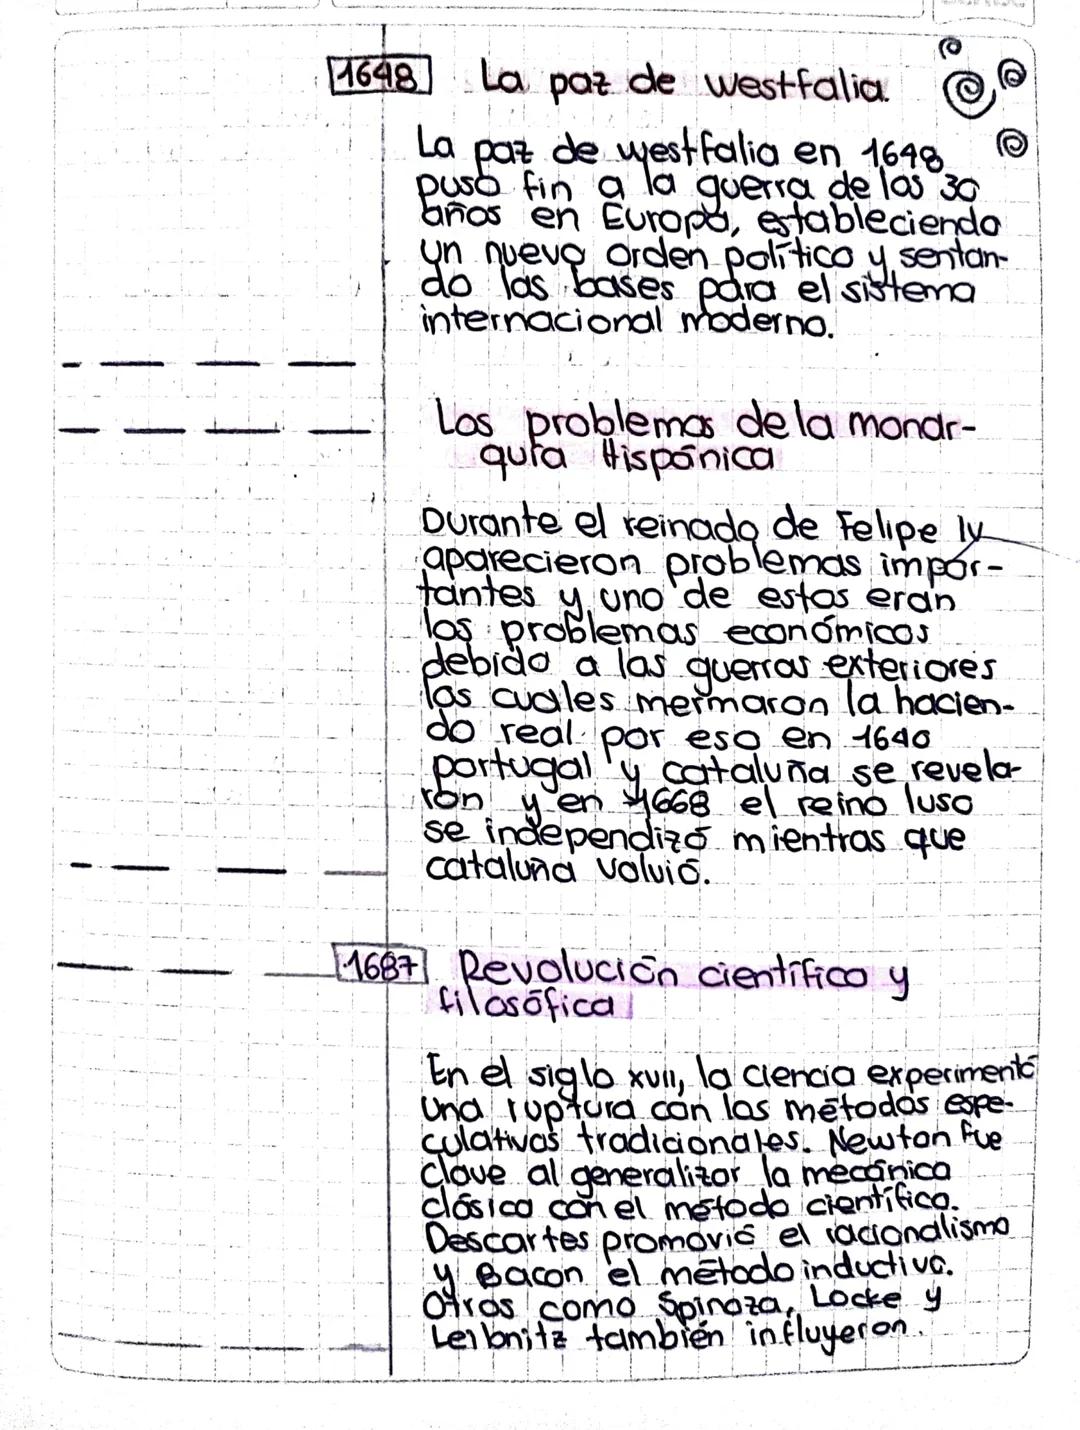 1648 La paz de westfalia.
La paz de westfalia en 1648
puso fin a la guerra de los 30
años en Europa, estableciendo
un nuevo orden político y sentan-
do las bases para el sistema
internacional moderno.
Los problemas de la monar-
quía Hispánica
Durante el reinado de Felipe IV
aparecieron problemas impor-
tantes y uno de estos eran
los problemas económicos
debido a las guerras exteriores
las cuales mermaron la hacien-
da real por eso en 1640
portugal y cataluña se revela-
ron y en 1668 el reino luso
se independizó mientras que
cataluña volvió.
1687 Revolución científica y
filosófica
En el siglo XVII, la ciencia experimentó
una ruptura con los métodos espe-
culativos tradicionales. Newton fue
clave al generalizar la mecánica
clásica con el método científico.
Descartes promovió el racionalismo
y Bacon el método inductivo.
Otros como Spinoza, Locke y
Leibnitz también influyeron.